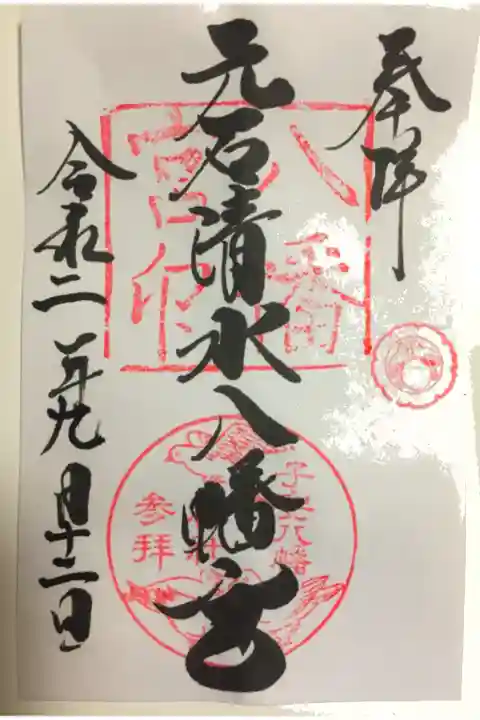 奉拝
元石清水八幡宮
令和二年九月十二日
八幡
宮印
参拝